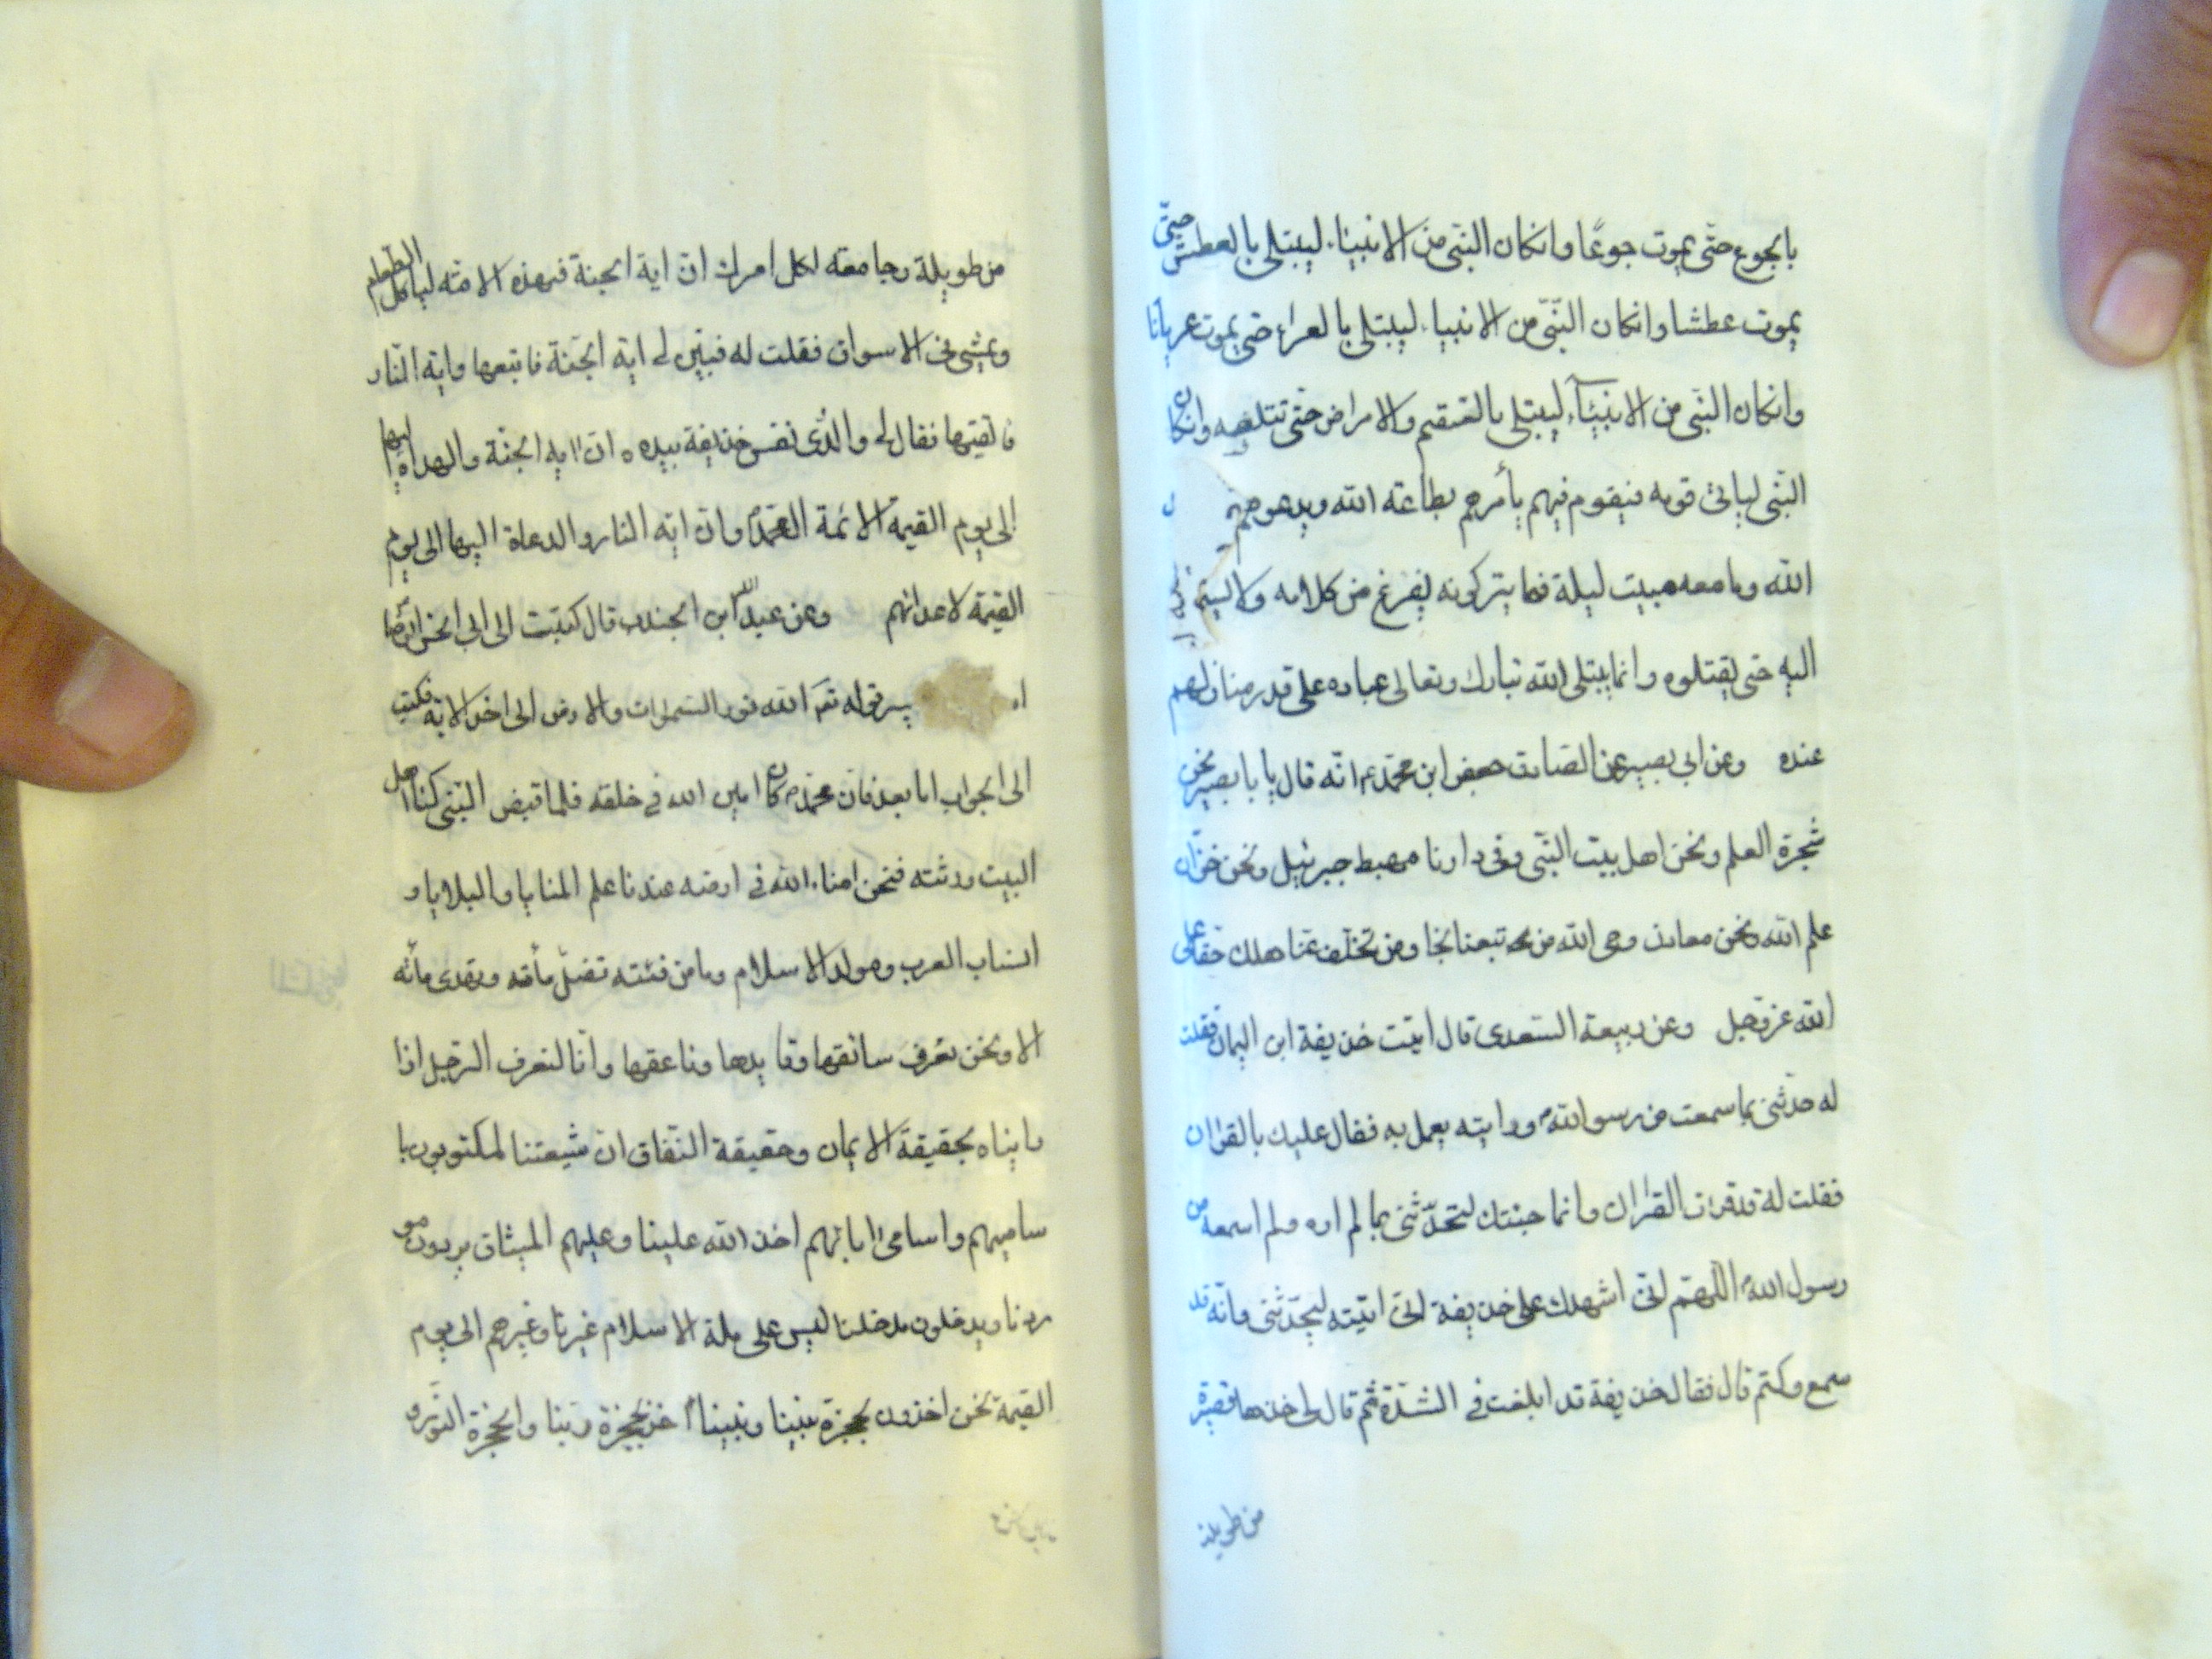 بالجوع حتّى يموت جوعًا وانكان النبّى من الانبيٓاء ليبتلى بالعطش حتىّ
يموت عطشا وانكان النّبّى من الانبياء ليبتلى بالعراء حتى يموت عريانا
وانكان النبّى من الانبيٓاء ليبتلى بالسّقم والامراض حتّى تتلفه وانكان
النبّى لياتى قومه فيقوم فيهم يأمرهم بطاعته الله ويدعوهم
الله وما معه مبيت ليلة فما يتركونه يفرغ من كلامه ولا يستمع
اليه حتى يقتلوه وانما يبتلى الله تبارك وتعالى عباده على قدر منازلهم
عنده وعن ابى بصير عن الصادق جعفر ابن محمّد انّه قال يا با بصير نحن
شجرة العلم ونحن اهل بيت النبّى وفى دارنا مهبط جبرئيل ونحن خزّان
علم الله ونحن معادن وحى الله من تبعنا نجا ومن تخلّف عنّا هلك حقّا على
الله عزوجل وعن ربيعة السّعدى قال اتيت حذيفة ابن اليمان فقلت
له حدّثنى بما سمعت من رسول الله ورايته يعمل به فقال عليك بالقران
فقلت له قد قرات القران وانما جئتك لتحدّثنى بما لم اره ولم اسمعه من
رسول الله اللّهمّ انّى اشهدك على حذيفة انّى اتيته ليحدّثنى وانّه قد
سمع وكتم قال فقال حذيفة قد ابلغت فى الشدّة ثم قال لى خذها قصيرة
من طويلة
من طويلة وجامعته لكل امرك انّ اية الجنة فى هذه الامّته لياكل الطعام
ويمشى فى الاسواق فقلت له فبيّن لى اية الجنّة فاتبعها واية النّار
فاتقيها فقال لى والذّى نفس حذيفة بيده انّ اية الجنّة والهداة اليها
الى يوم القيمة الائمة ال محمّد وانّ اية النار والدعاة اليها الى يوم
القيمة لاعدائهم وعن عبد الله ابن الجندب قال كتبت الى ابى الحسن الرضا
تفسير قوله تعَ الله نور السّموات والارض الى اخر الاية فكتب
الى الجواب اما بعد فانّ محمّد كان امين الله فى خلقه فلما قبض النّبى كنا اهل
البيت ورثته فنحن امناء الله فى ارضه عندنا علم المنايا والبلايا و
انساب العرب ومولد الاسلام وما من فئته تضلّ مأته وتهدى مأته
الا ونحن نعرف سائقها وقايدها وناعقها وانا لنعرف الرّجل اذا
رايناه بحقيقة الايمان وحقيقة النّفاق انّ شيعتنا لمكتوبون با
ساميهم واسامى ابائهم اخذ الله علينا وعليهم الميثاق يردون مو
ردنا ويدخلون مدخلنا ليس على ملة الاسلام غيرنا وغيرهم الى يوم
القيمة نحن اخذون بحجزة نبينا ونبينا اخذ بحجزة ربّنا والحجزة النّور و